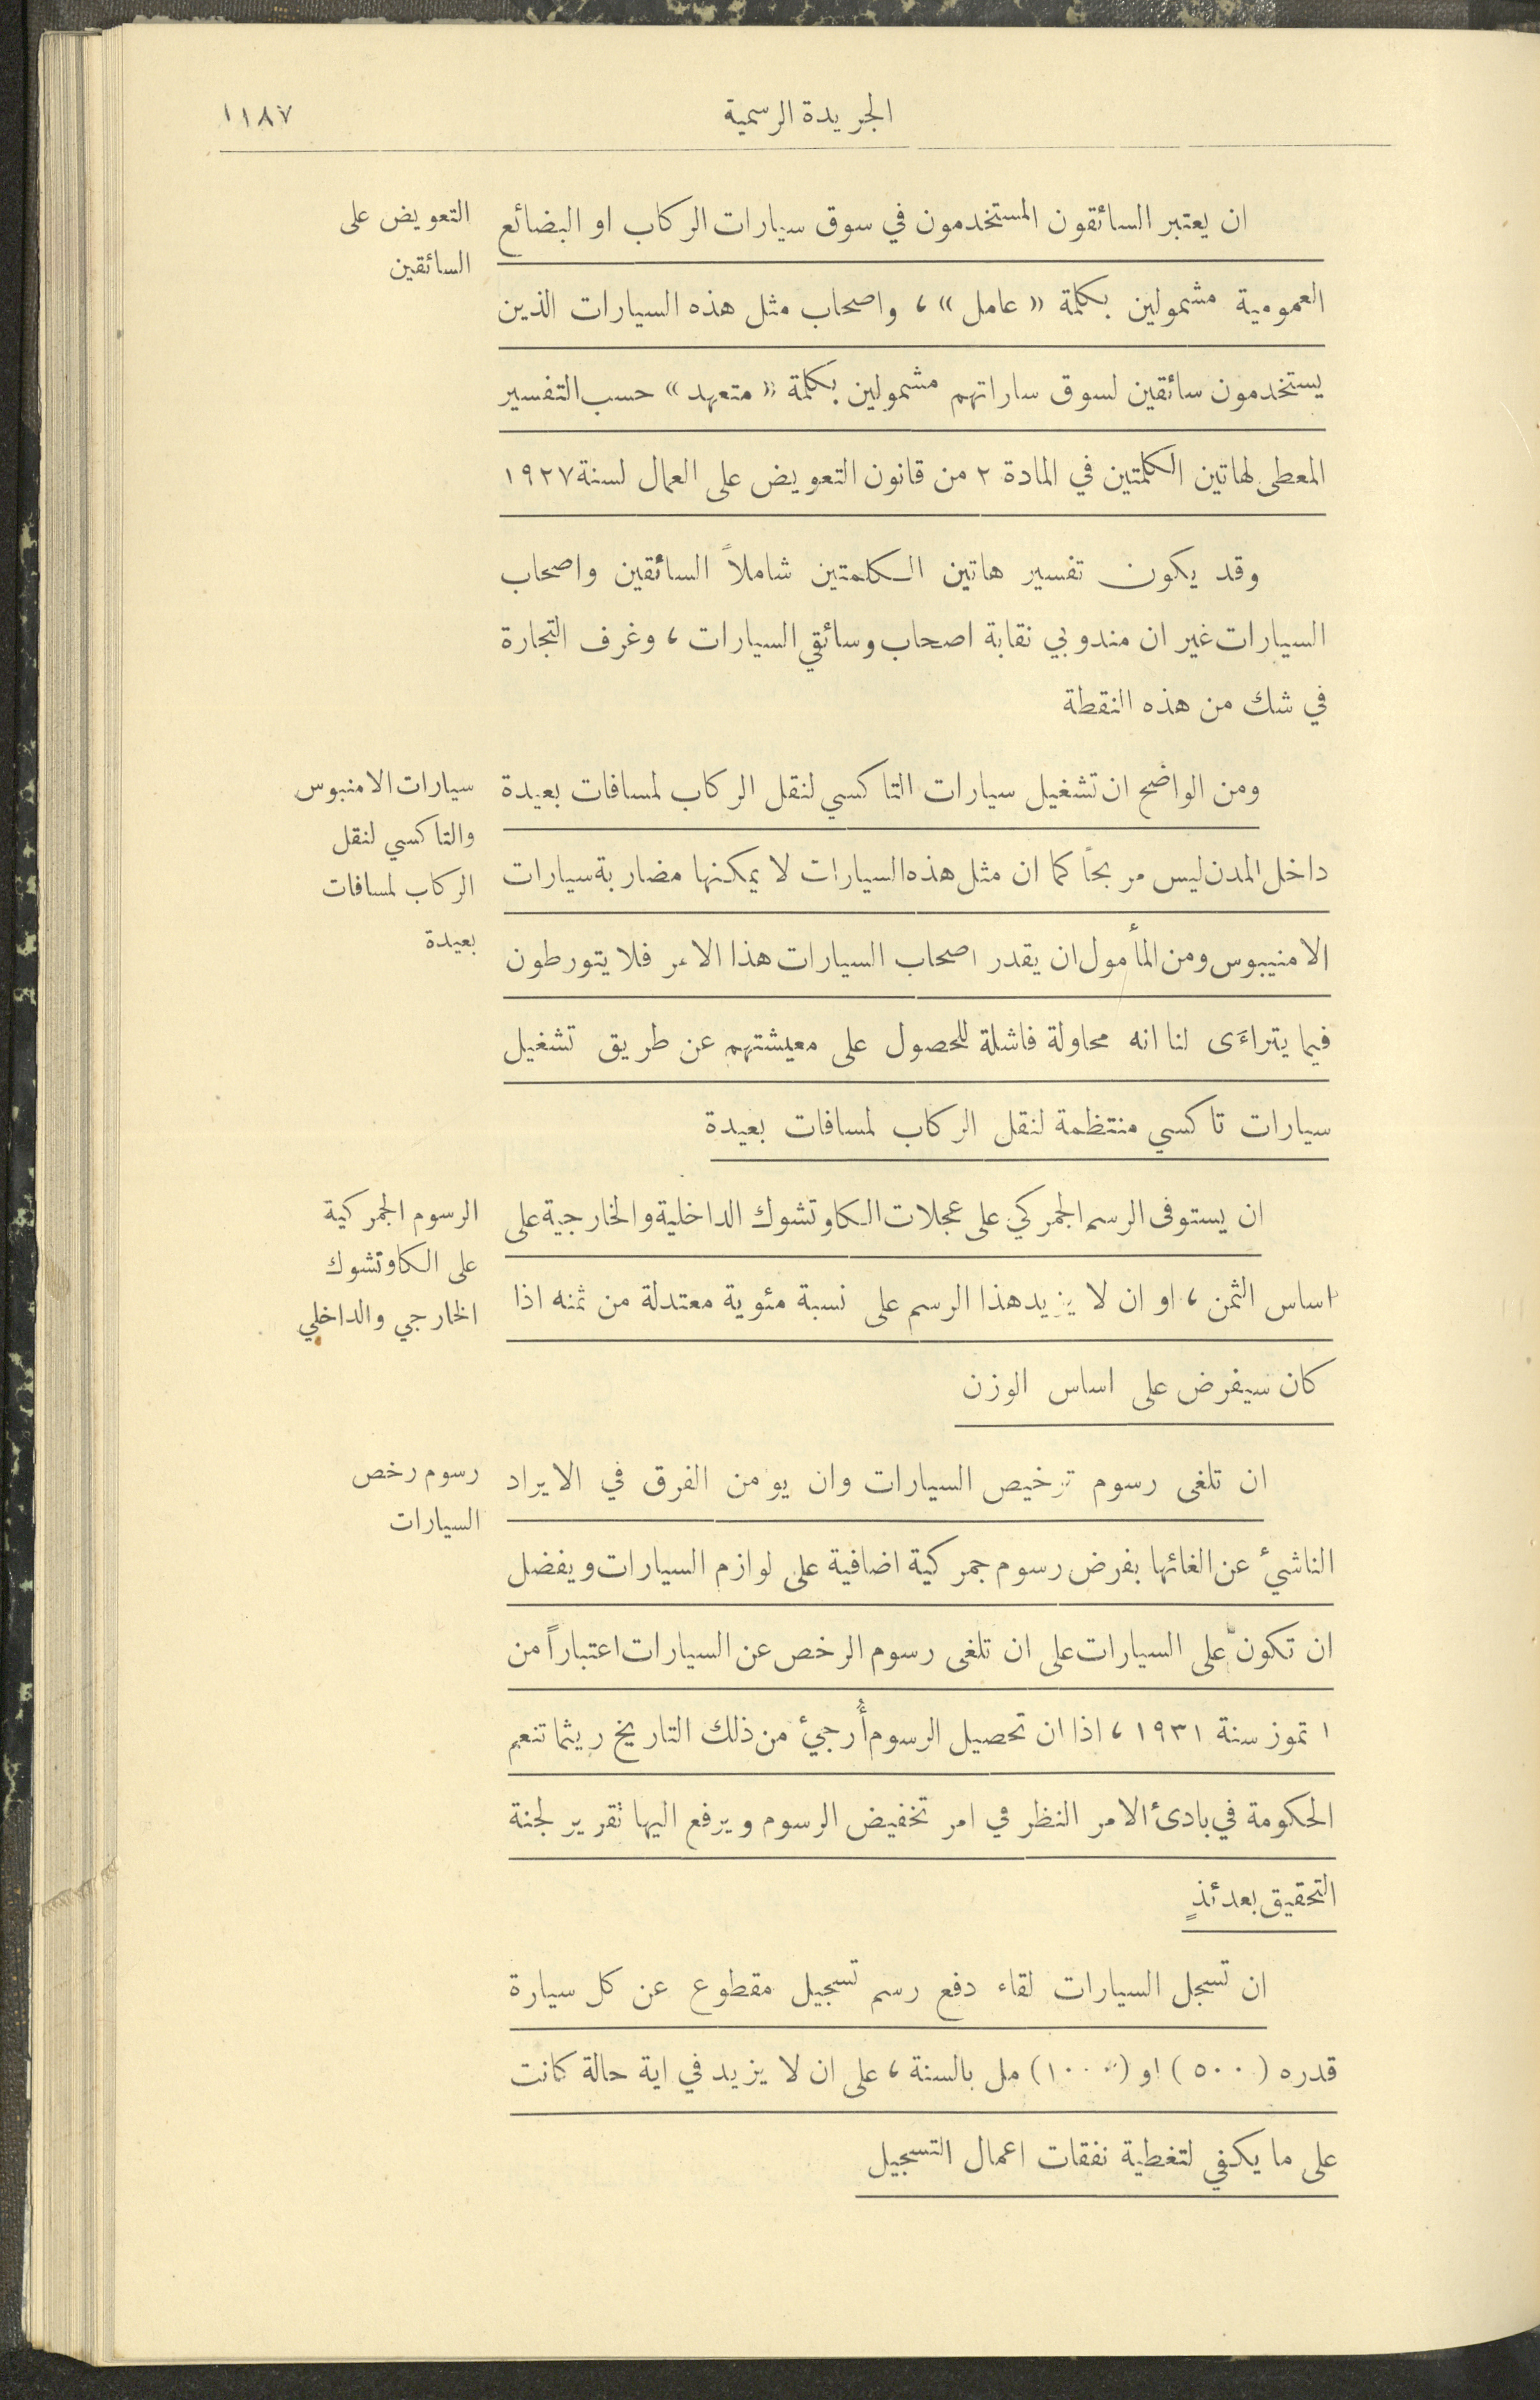 الجريدة الرسمية
١١٨٧
التعويض على
السائقين
ان يعتبر السائقون المستخدمون في سوق سيارات الركاب او البضائع
العمومية مشمولين بكلمة «عامل»، واصحاب مثل هذه السيارات الذين
يستخدمون سائقين لسوق ساراتهم مشمولين بكلمة «متعهد» حسب التفسير
المعطى لهاتين الكلمتين في المادة ٢ من قانون التعويض على العمال لسنة ١٩٢٧
وقد يكون تفسير هاتين الكلمتين شاملاً السائقين واصحاب
السيارات غير ان مندوبي نقابة اصحاب وسائقي السيارات، وغرف التجارة
في شك من هذه النقطة
سيارات الامنبوس
والتاكسي لنقل
الركاب لمسافات
بعيدة
ومن الواضح ان تشغيل سيارات التاكسي لنقل الركاب لمسافات بعيدة
داخل المدن ليس مربحاً كما ان مثل هذه السيارات لا يمكنها مضاربة سيارات
الامنيبوس ومن المأمول ان يقدر اصحاب السيارات هذا الامر فلا يتورطون
فيما يتراءَى لنا انه محاولة فاشلة للحصول على معيشتهم عن طريق تشغيل
سيارات تاكسي منتظمة لنقل الركاب لمسافات بعيدة
الرسوم الجمركية
على الكاوتشوك
الخارجي والداخلي
ان يستوفى الرسم الجمركي على عجلات الكاوتشوك الداخلية والخارجية على
اساس الثمن، او ان لا يزيد هذا الرسم على نسبة مئوية معتدلة من ثمنه اذا
كان سيفرض على اساس الوزن
رسوم رخص
السيارات
ان تلغى رسوم ترخيص السيارات وان يومن الفرق في الايراد
الناشئ عن الغائها بفرض رسوم جمركية اضافية على لوازم السيارات ويفضل
ان تكون على السيارات على ان تلغى رسوم الرخص عن السيارات اعتباراً من
١ تموز سنة ١٩٣١، اذا ان تحصيل الرسوم أُرجئ من ذلك التاريخ ريثما تنعم
الحكومة في بادئ الامر النظر في امر تخفيض الرسوم ويرفع اليها تقرير لجنة
التحقيق بعدئذٍ
ان تسجل السيارات لقاء دفع رسم تسجيل مقطوع عن كل سيارة
قدره (٥٠٠) او (١٠٠٠) مل بالسنة، على ان لا يزيد في اية حالة كانت
على ما يكفي لتغطية نفقات اعمال التسجيل